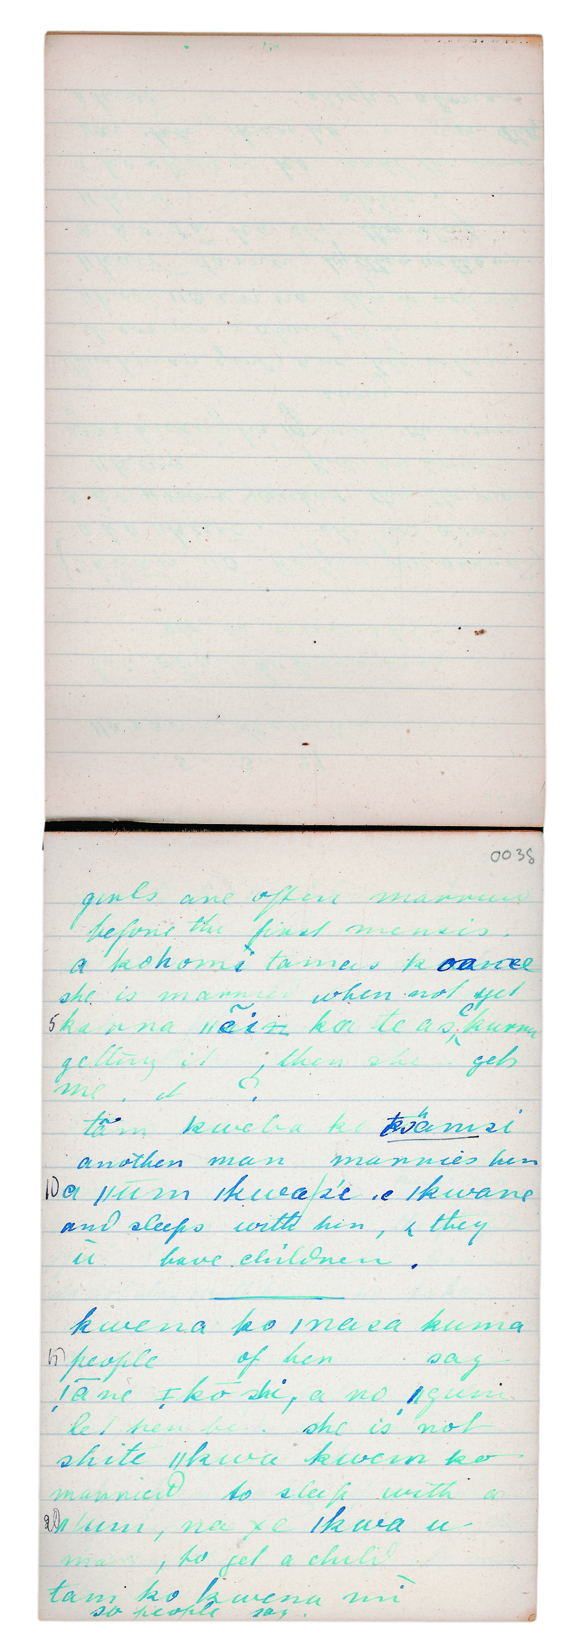 0038
girls are often married
before the first mensis.
a kohomi tamas k oance
she is married when not yet
5 kanna ǁẽi ka te as kunna
getting it ; then she gets
me
tãm kweba ko
another man marries her
10 a ǁũm ǀkwa/ze .e ǀkwane
and sleeps with her, & they
ũ have children .
kwena ko ǀnasa kuma
15 people of her say
ǀãne ǂkõ shi, a no ǁgum
let her be.. she is not
shite ǁkwu kwem ko
married to sleep with a
20 ǁum, na xe ǀkwa u
man , to get a child
tam ko kwena mĩ
so people say.